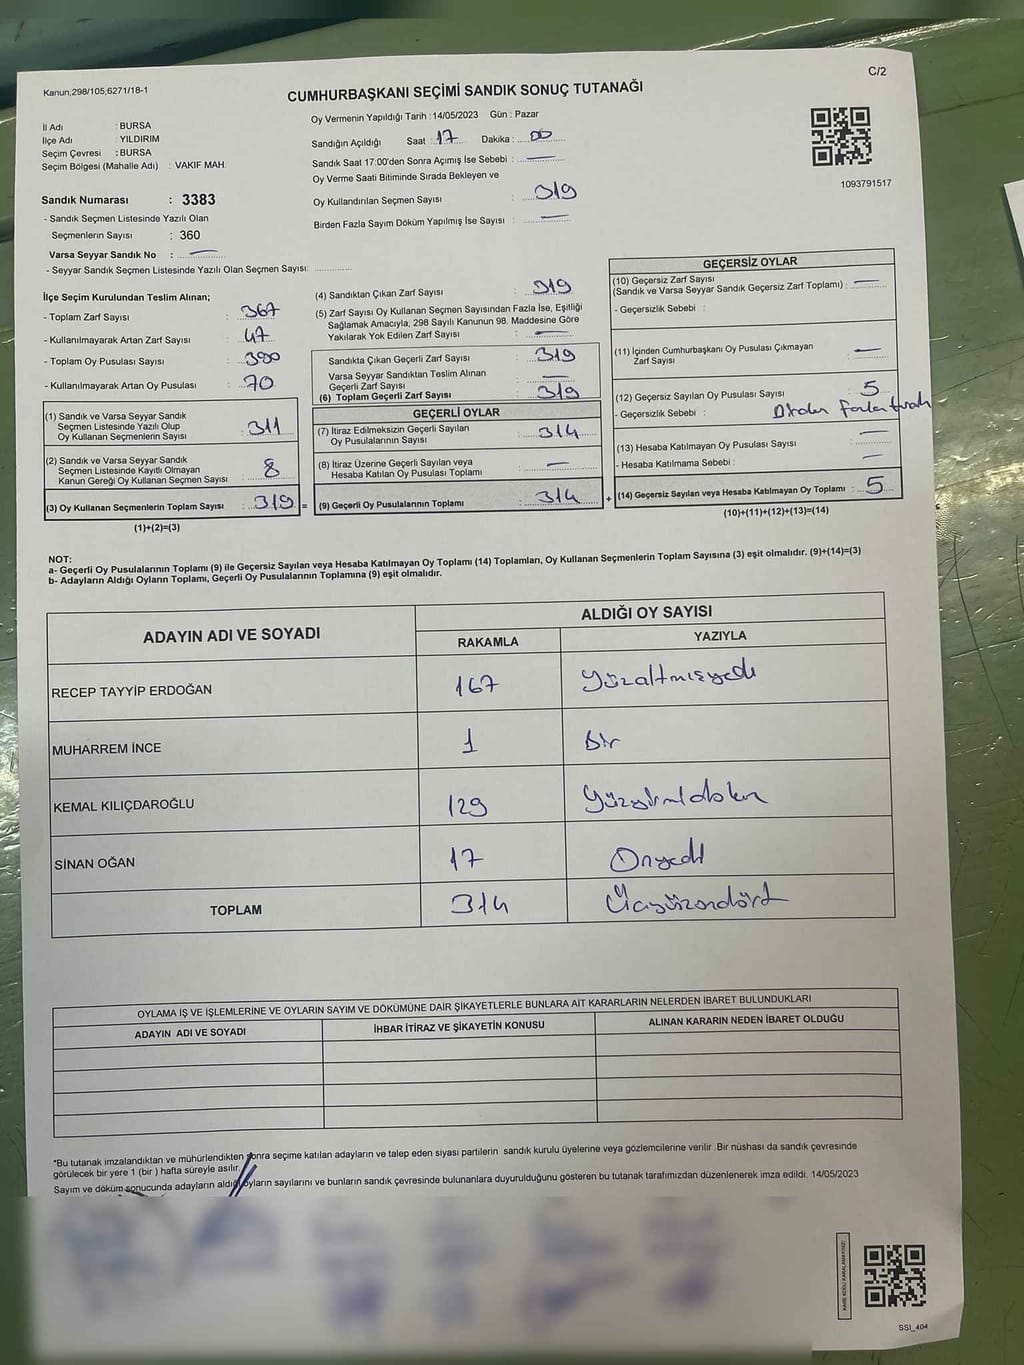 Kanun,298/105,6271/18-1
C/2
CUMHURBAŞKANI SEÇİMİ SANDIK SONUÇ TUTANAĞI
İl Adı : BURSA
İlçe Adı : YILDIRIM
Seçim Çevresi : BURSA
Seçim Bölgesi (Mahalle Adı) : VAKIF MAH.
Sandık Numarası : 3383
- Sandık Seçmen Listesinde Yazılı Olan
Seçmenlerin Sayısı : 360
Varsa Seyyar Sandık No : —
- Seyyar Sandık Seçmen Listesinde Yazılı Olan Seçmen Sayısı: ..............
Oy Vermenin Yapıldığı Tarih : 14/05/2023 Gün : Pazar
Sandığın Açıldığı Saat : 17 Dakika : 00
Sandık Saat 17:00'den Sonra Açımış İse Sebebi : —
Oy Verme Saati Bitiminde Sırada Bekleyen ve
Oy Kullandırılan Seçmen Sayısı : 319
Birden Fazla Sayım Döküm Yapılmış İse Sayısı : —
1093791517
İlçe Seçim Kurulundan Teslim Alınan;
- Toplam Zarf Sayısı : 367
- Kullanılmayarak Artan Zarf Sayısı : 47
- Toplam Oy Pusulası Sayısı : 390
- Kullanılmayarak Artan Oy Pusulası : 70
(1) Sandık ve Varsa Seyyar Sandık
Seçmen Listesinde Yazılı Olup
Oy Kullanan Seçmenlerin Sayısı : 311
(2) Sandık ve Varsa Seyyar Sandık
Seçmen Listesinde Kayıtlı Olmayan
Kanun Gereği Oy Kullanan Seçmen Sayısı : 8
(3) Oy Kullanan Seçmenlerin Toplam Sayısı : 319 =
(1)+(2)=(3)
(4) Sandıktan Çıkan Zarf Sayısı : 319
(5) Zarf Sayısı Oy Kullanan Seçmen Sayısından Fazla İse, Eşitliği
Sağlamak Amacıyla, 298 Sayılı Kanunun 98. Maddesine Göre
Yakılarak Yok Edilen Zarf Sayısı : —
Sandıkta Çıkan Geçerli Zarf Sayısı : 319
Varsa Seyyar Sandıktan Teslim Alınan
Geçerli Zarf Sayısı : —
(6) Toplam Geçerli Zarf Sayısı : 319
GEÇERLİ OYLAR
(7) İtiraz Edilmeksizin Geçerli Sayılan
Oy Pusulalarının Sayısı : 314
(8) İtiraz Üzerine Geçerli Sayılan veya
Hesaba Katılan Oy Pusulası Toplamı : —
(9) Geçerli Oy Pusulalarının Toplamı : 314 +
GEÇERSİZ OYLAR
(10) Geçersiz Zarf Sayısı
(Sandık ve Varsa Seyyar Sandık Geçersiz Zarf Toplamı) : —
- Geçersizlik Sebebi :
(11) İçinden Cumhurbaşkanı Oy Pusulası Çıkmayan
Zarf Sayısı : —
(12) Geçersiz Sayılan Oy Pusulası Sayısı : 5
- Geçersizlik Sebebi :
(13) Hesaba Katılmayan Oy Pusulası Sayısı : —
- Hesaba Katılmama Sebebi : —
(14) Geçersiz Sayılan veya Hesaba Katılmayan Oy Toplamı : 5
(10)+(11)+(12)+(13)=(14)
NOT:
a- Geçerli Oy Pusulalarının Toplamı (9) ile Geçersiz Sayılan veya Hesaba Katılmayan Oy Toplamı (14) Toplamları, Oy Kullanan Seçmenlerin Toplam Sayısına (3) eşit olmalıdır. (9)+(14)=(3)
b- Adayların Aldığı Oyların Toplamı, Geçerli Oy Pusulalarının Toplamına (9) eşit olmalıdır.
ADAYIN ADI VE SOYADI ALDIĞI OY SAYISI
RAKAMLA YAZIYLA
RECEP TAYYİP ERDOĞAN 167 Yüzaltmışyedi
MUHARREM İNCE 1 Bir
KEMAL KILIÇDAROĞLU 129 Yüzyirmidokuz
SİNAN OĞAN 17 Onyedi
TOPLAM 314 Üçyüzondört
OYLAMA İŞ VE İŞLEMLERİNE VE OYLARIN SAYIM VE DÖKÜMÜNE DAİR ŞİKAYETLERLE BUNLARA AİT KARARLARIN NELERDEN İBARET BULUNDUKLARI
ADAYIN ADI VE SOYADI İHBAR İTİRAZ VE ŞİKAYETİN KONUSU ALINAN KARARIN NEDEN İBARET OLDUĞU
*Bu tutanak imzalandıktan ve mühürlendikten sonra seçime katılan adayların ve talep eden siyasi partilerin sandık kurulu üyelerine veya gözlemcilerine verilir .Bir nüshası da sandık çevresinde
görülecek bir yere 1 (bir ) hafta süreyle asılır.
Sayım ve döküm sonucunda adayların aldığı oyların sayılarını ve bunların sandık çevresinde bulunanlara duyurulduğunu gösteren bu tutanak tarafımızdan düzenlenerek imza edildi. 14/05/2023
SSI_404